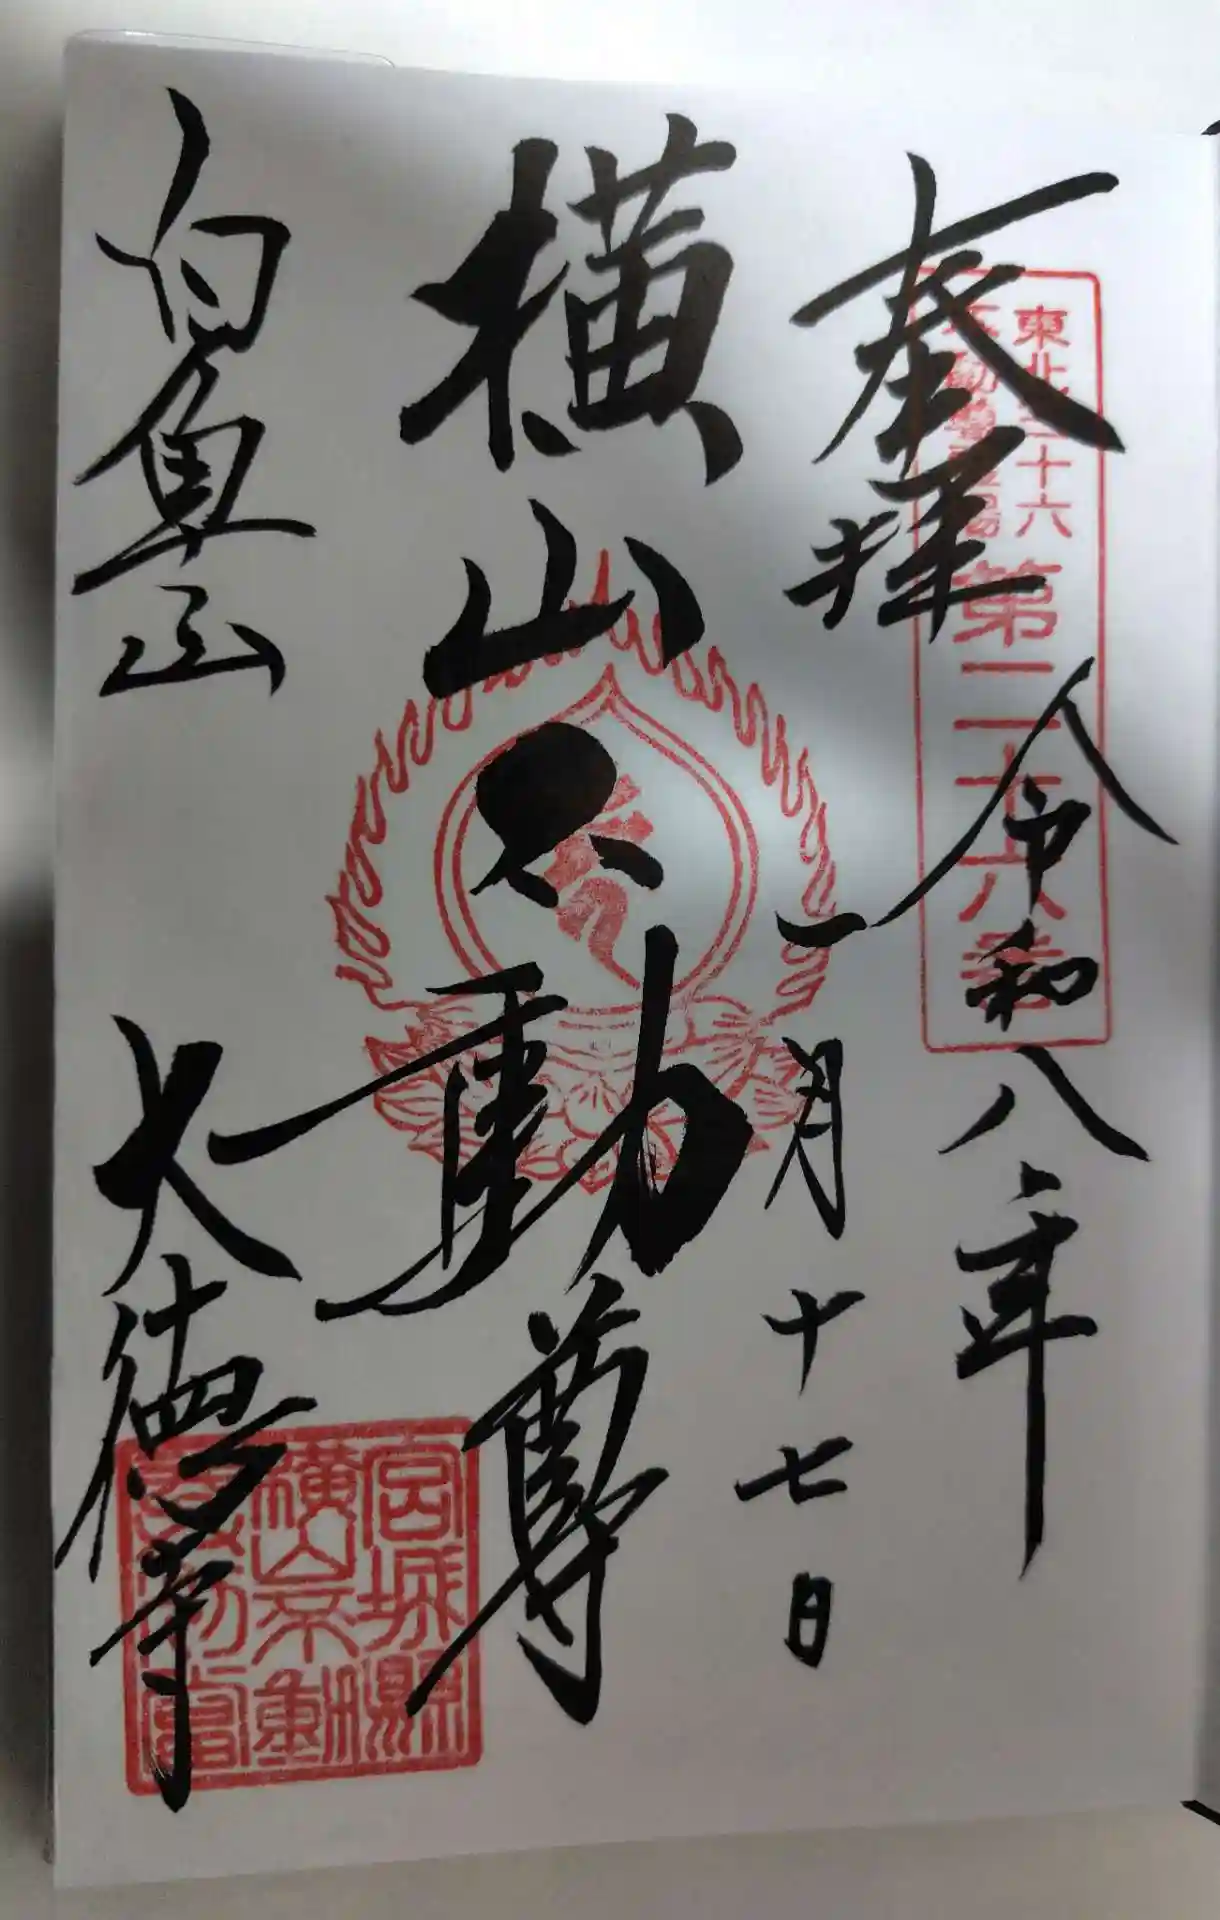 奉拝
東北三十六
不動尊霊場
第二十六番
令和八年
一月十七日
横山不動尊
白魚山
大徳寺
宮城縣
横山不動